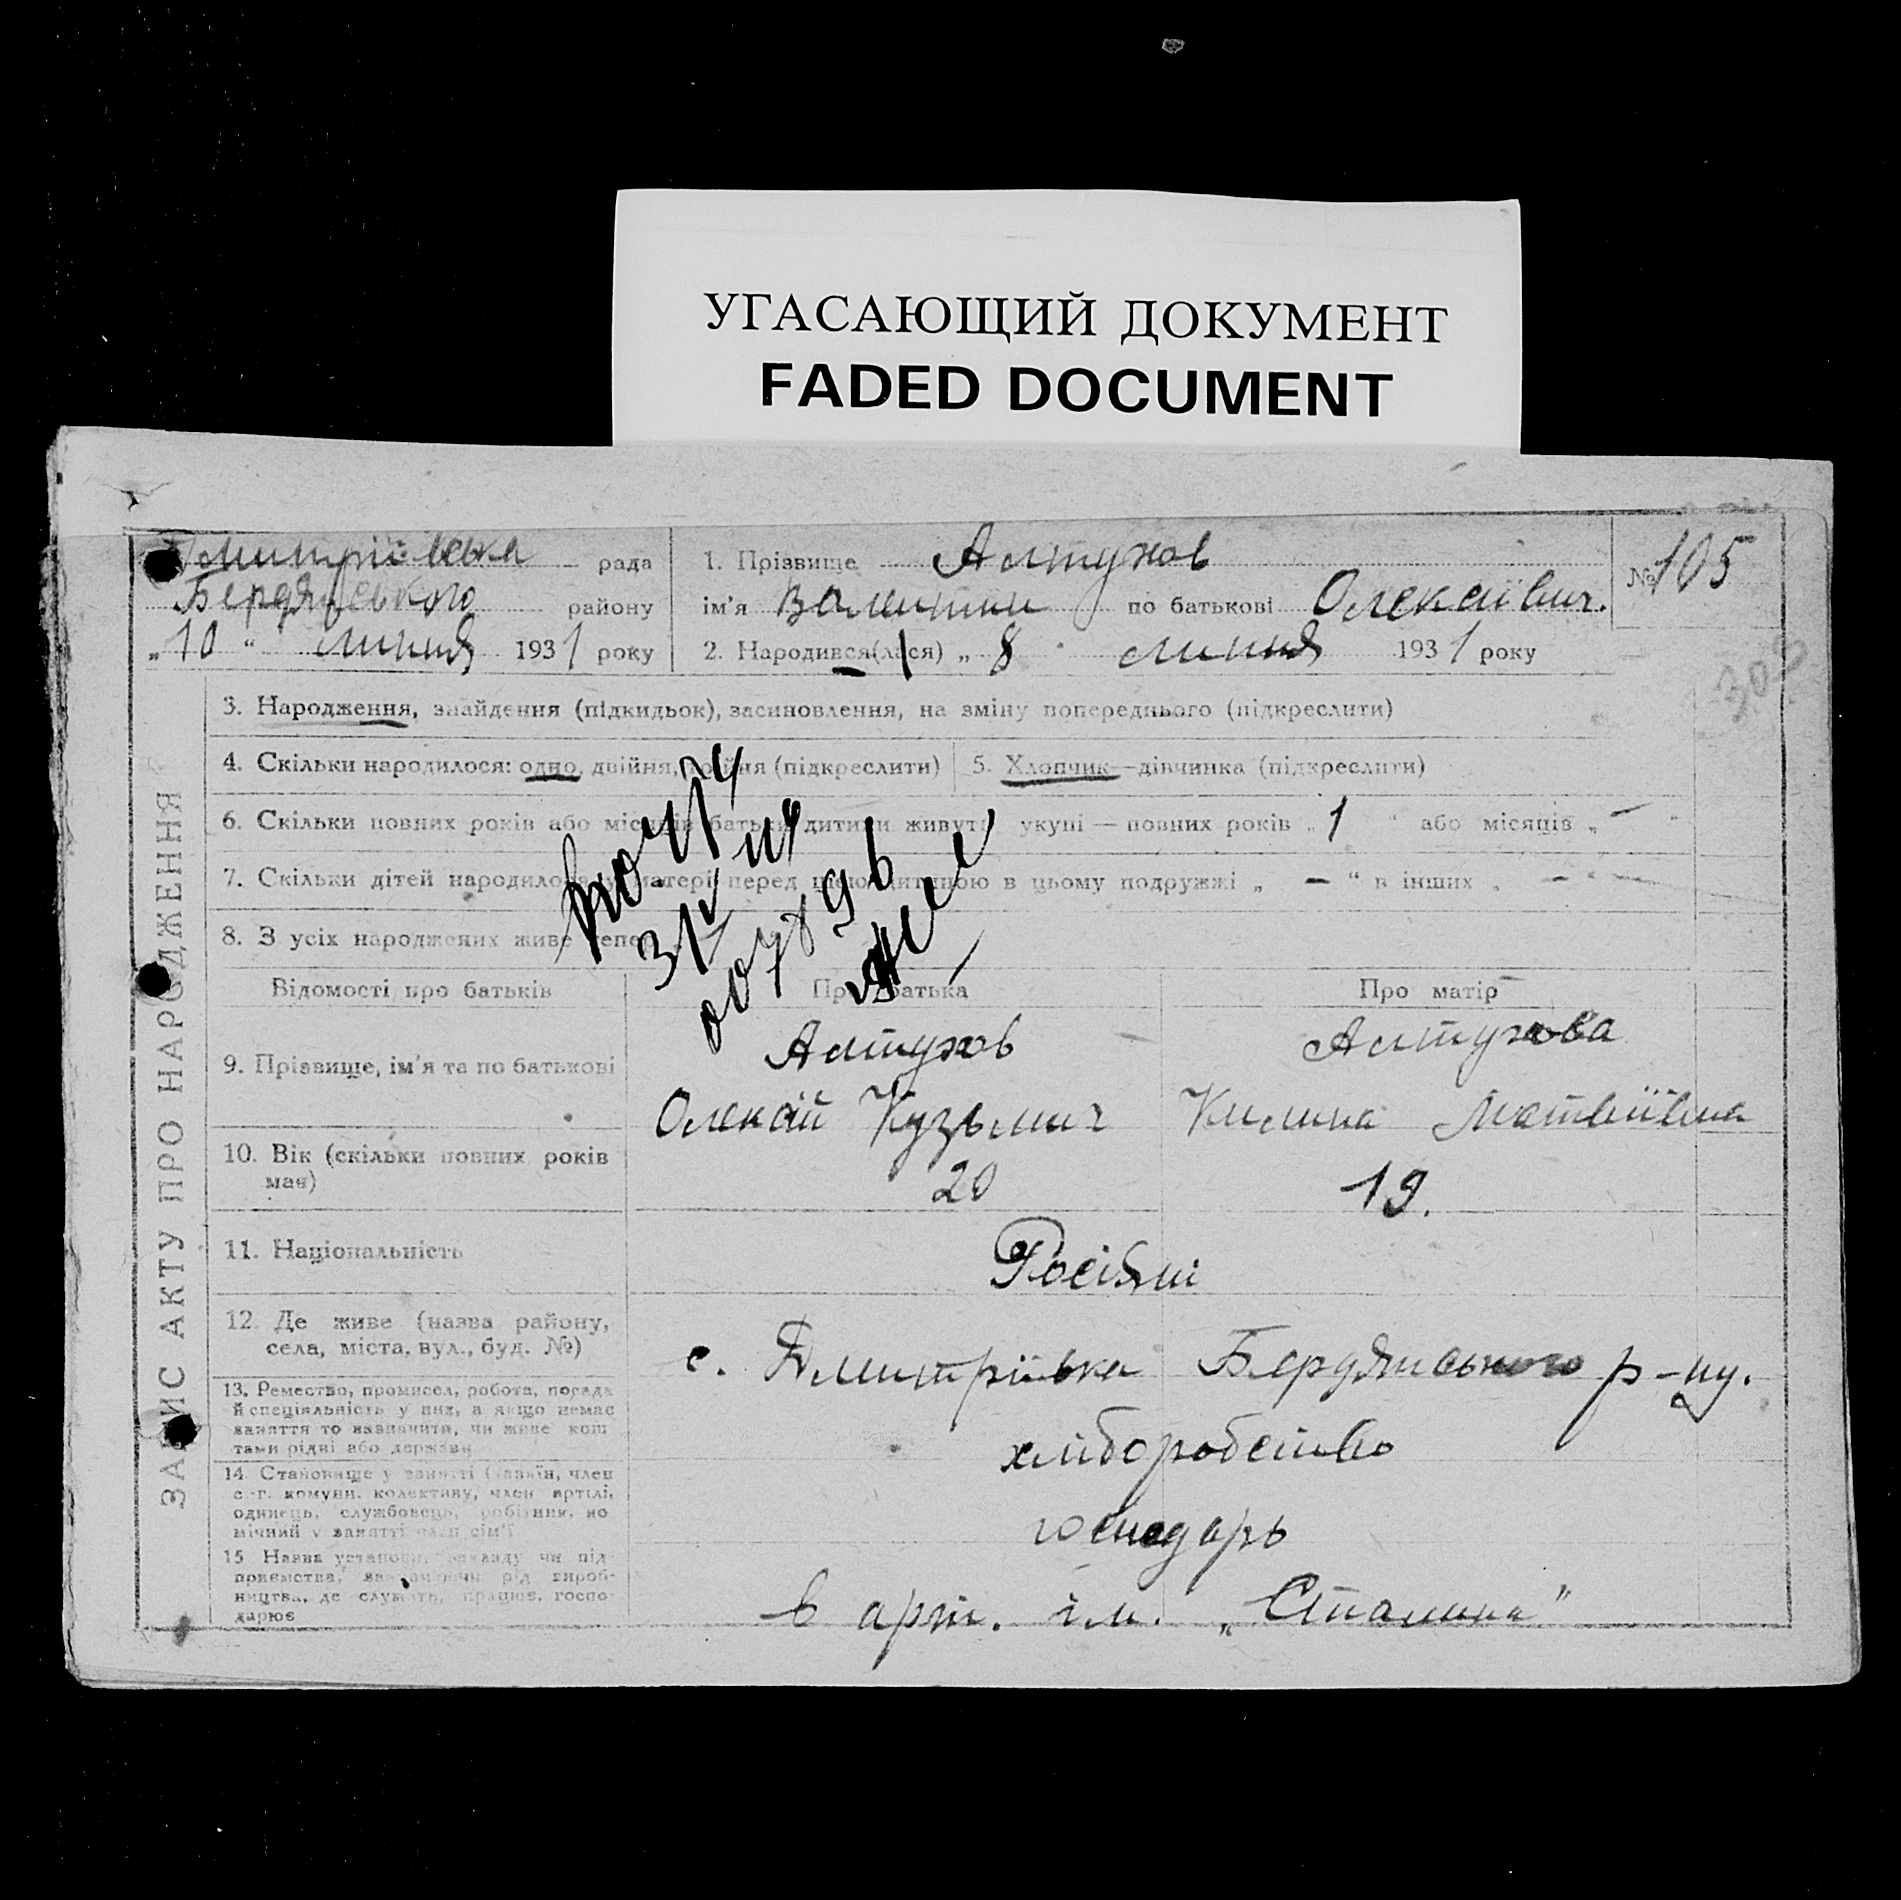 УГАСАЮЩИЙ ДОКУМЕНТ
FADED DOCUMENT
Дмитріївська рада
Бердянського району
„10“ липня 1931 року
1. Прізвище Алтухов
ім'я Валентин по батькові Олексіївич.
2. Народився(лася) „8 липня 1931 року
№ 105
305
ЗАПИС АКТУ ПРО НАРОДЖЕННЯ
3. Народження, знайдення (підкидьок), засиновлення, на зміну попереднього (підкреслити)
4. Скільки народилося: одно, двійня, трійня (підкреслити)
5. Хлопчик—дівчинка (підкреслити)
6. Скільки повних років або місяців батьки дитини живуть укупі — повних років „1“ або місяців „—“
7. Скільки дітей народилося у матері перед цією дитиною в цьому подружжі „—“ в інших „—“
8. З усіх народжених живе тепер
Відомості про батьків
Про батька
Про матір
9. Прізвище, ім'я та по батькові
Алтухов
Олексій Кузьмич
Алтухова
Килина Матвіївна
10. Вік (скільки повних років має)
20
19.
11. Національність
Росіяни
12. Де живе (назва району, села, міста, вул., буд. №)
с. Дмитріївка Бердянського р-ну.
13. Ремество, промисел, робота, посада й спеціяльність у них, а якщо немає заняття то зазначити, чи живе коштами рідні або держави
хліборобство
14. Становище у занятті (хазяїн, член с.-г. комуни, колективу, член артілі, одинець, службовець, робітник, помічний у занятті член сім'ї
господарь
15. Назва установи, закладу чи підприємства, зазначаючи рід виробництва, де служить, працює, господарює
в арт. ім. „Сталина"